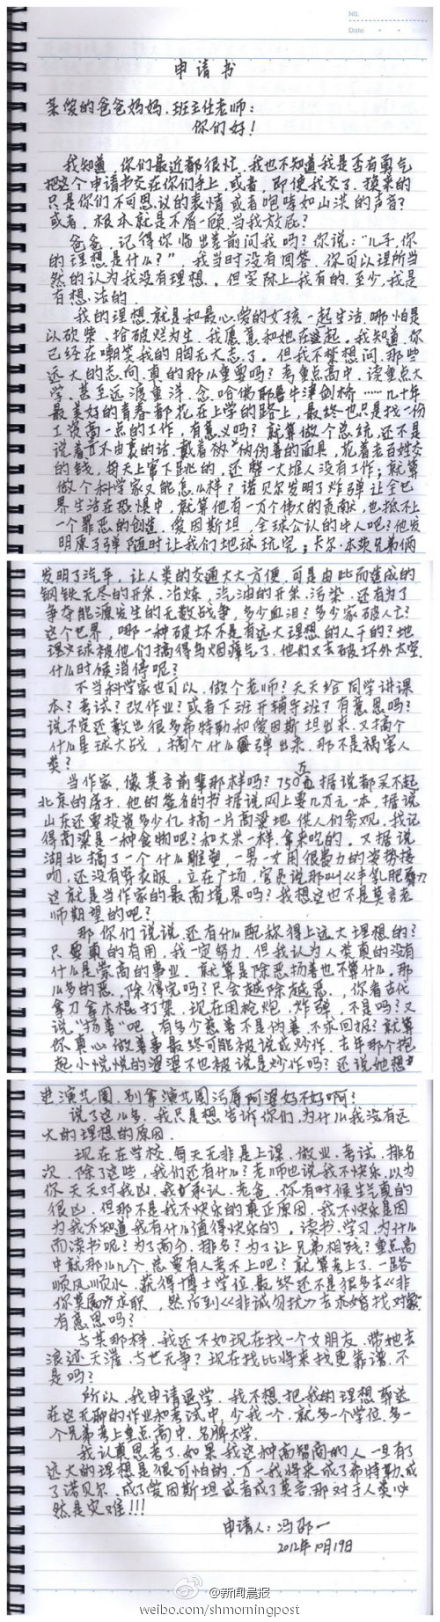 NO.
Date
申请书
亲爱的爸爸妈妈、班主任老师：
你们好！
我知道，你们最近都很忙，我也不知道我是否有勇气
把这个申请书交在你们手上，或者，即使我交了，换来的
只是你们不可思议的表情或者咆哮如山洪的声音？
或者，根本就是不屑一顾，当我放屁？
爸爸，记得你临出差前问我吗？你说：“儿子，你
的理想是什么？”，我当时没有回答，你可以理所当
然的认为我没有理想。但实际上我有的，至少，我是
有想法的。
我的理想就是和最心爱的女孩一起生活，哪怕是
以砍柴、拾破烂为生，我愿意和她在一起。我知道，你
已经在嘲笑我的胸无大志了。但我不禁想问，那些
远大的志向，真的那么重要吗？考重点高中，读重点大
学，甚至远渡重洋，念哈佛耶鲁牛津剑桥……几十年
最美好的青春都花在上学的路上，最终也只是找一份
工资高一点的工作，有意义吗？就算做个总统，还不是
说着言不由衷的话，戴着伪善的面具，花着老百姓交
的钱，每天上窜下跳的，还整一大堆人没有工作；就算
做个科学家又能怎么样？诺贝尔发明了炸弹让全世
界生活在恐惧中，就算他有一万个伟大的贡献，也抵不上
一个罪恶的创造。爱因斯坦，全球公认的牛人吧？他发
明原子弹随时让我们地球玩完；卡尔·本茨兄弟俩
发明了汽车，让人类的交通大大方便，可是由此而造成的
钢铁无尽的开采、冶炼，汽油的开采、污染，还有为了
争夺能源发生的无数战争，多少血泪？多少家破人亡？
这个世界，哪一种破坏不是有远大理想的人干的？地
球被他们搞得乌烟瘴气了，他们又去破坏外太空，
什么时候消停呢？
不当科学家也可以，做个老师？天天给同学讲课
本？考试？改作业？或者下班开辅导班了有意思吗？
说不定还教出很多希特勒和爱因斯坦出来，又搞个
什么星球大战，搞个什么弹出来，那不是祸害人
类？
当作家，像莫言前辈那样吗？750万据说都买不起
北京的房子，他的签名的书据说网上要几万元一本，据说
山东还要投资多少亿搞一片高粱地供人们参观，我记
得高粱是一种食物吧？和大米一样，拿来吃的。又据说
湖北搞了一个什么雕塑，一男一女用很费力的姿势接
吻，还没有穿衣服，立在广场，官员说那叫《丰乳肥臀》
这就是当作家的最高境界吗？我想这也不是莫言老
师期望的吧？
那你们说说，还有什么配称得上远大理想的？
只要真的有用，我一定努力，但我认为人类真的没有
什么是崇高的事业。就算是除恶扬善也不算什么，那
么多的恶，除得完吗？只会越除越恶，你看古代
拿刀拿木棍打架，现在用枪炮、炸弹，不是吗？又
说“扬善”吧，有多少慈善不是伪善，不求回报？就算
你真心做善事最终可能被说成炒作，去年那个抱
起小悦悦的婆婆不也被说是炒作吗？还说她想
进演艺圈，别拿演艺圈污辱阿婆好不好啊？
说了这么多，我只是想告诉你们，为什么我没有远
大的理想的原因。
现在在学校，每天无非是上课、做业、考试、排名
次，除了这些，我们还有什么？老师也说我不快乐，以为
你天天对我凶，我承认，老爸，你有时候生气真的
很凶，但那不是我不快乐的真正原因，我不快乐是因
为我不知道我有什么值得快乐的，读书、学习，为什么
而读书呢？为了高分、排名？为了让兄弟相残？重点高
中就那么几个，总要有人考不上吧？就算考上了，一路
顺风顺水，获得博士学位，最终还不是很多去《非
你莫属》求职，然后到《非诚勿扰》去求婚找对象
有意思吗？
与其那样，我还不如现在找一个女朋友，带她去
浪迹天涯，与世无争？现在找比将来找更靠谱，不
是吗？
所以，我申请退学，我不想把我的理想葬送
在这无聊的作业和考试中，少我一个，就多一个学位，多一
个兄弟考上重点高中、名牌大学。
我认真思考了，如果我这种高智商的人一旦有了
远大的理想是很可怕的，万一我将来成了希特勒，成
了诺贝尔，成了爱因斯坦或者成了莫言，那对于人类必
然是灾难！！！
申请人：冯邵一
2012年10月19日
@新闻晨报
weibo.com/shmorningpost